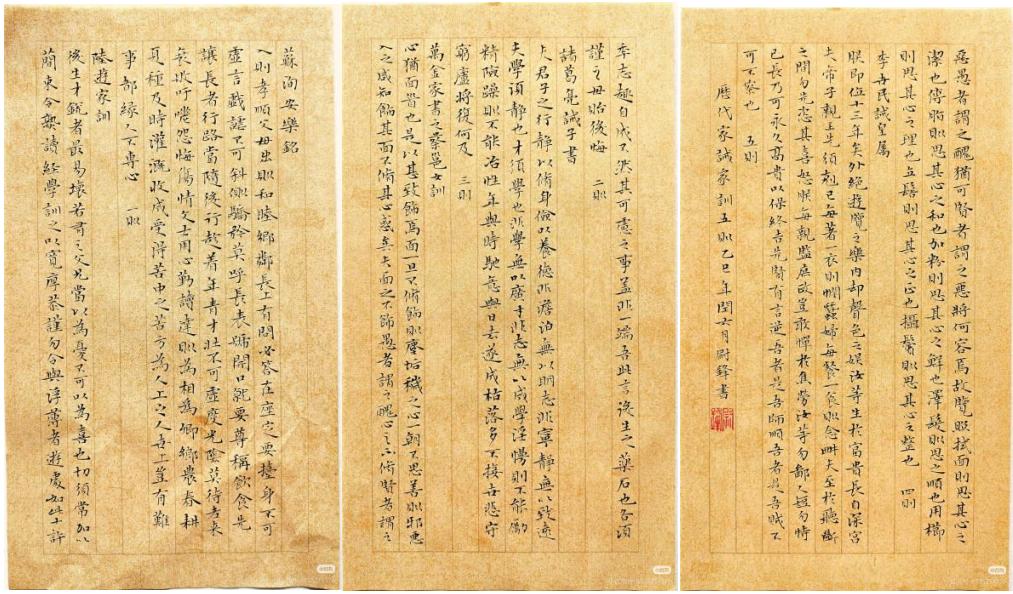 蘇洵安樂銘
入則孝順父母出則和睦鄉鄰長上有問必答在座定要擡身不可
虛言戲謔不可斜倾驕矜莫呼長表號開口就要尊稱飲食先
讓長者行路當隨後行趁着年青才壯不可虛度光陰莫待老來
無成吁嗟怨悔傷情文士用心勤讀達則為相為卿鄉農春耕
夏種及時灌溉收成受得苦中之苦方為人上之人世上豈有難
事都緣人不專心 一則
陸遊家訓
後生才銳者最易壞若有之父兄當以為憂不可以為喜也切須常加以
簡束令熟讀經學訓之以寬厚恭謹勿令與浮薄者遊處如此十許
年志趣自成不然其可慮之事蓋非一端吾此言後生之藥石也各須
謹之毋貽後悔 二則
諸葛亮誡子書
夫君子之行靜以脩身儉以養德非澹泊無以明志非寧靜無以致遠
夫學須靜也才須學也非學無以廣才非志無以成學淫慢則不能勵
精險躁則不能冶性年與時馳意與日去遂成枯落多不接世悲守
窮廬將復何及 三則
萬金家書之蔡邕女訓
心猶面首也是以甚致飾焉面一旦不脩飾則塵垢穢之心一朝不思善則邪惡
入之咸知飾其面不脩其心惑矣夫面之不飾愚者謂之醜心之不脩賢者謂之
惡愚者謂之醜猶可賢者謂之惡將何容焉故覽照拭面則思其心之
潔也傅脂則思其心之和也加粉則思其心之鮮也澤髮則思之順也用櫛
則思其心之理也立髻則思其心之正也攝鬢則思其心之整也 四則
李世民誡皇屬
朕即位十三年矣外絕遊覽之樂內却聲色之娛汝等生於富貴長自深宮
夫帝子親王先須剋己每著一衣則憫蠶婦每餐一食則念耕夫至於聽斷
之間勿先恣其喜怒朕每親監庶政豈敢憚於焦勞汝等勿鄙人短勿恃
己長乃可永久富貴以保終吉先賢有言逆吾者是吾師順吾者是吾賊不
可不察也 五則
歷代家誡家訓五則乙巳年閏六月尉鋒書